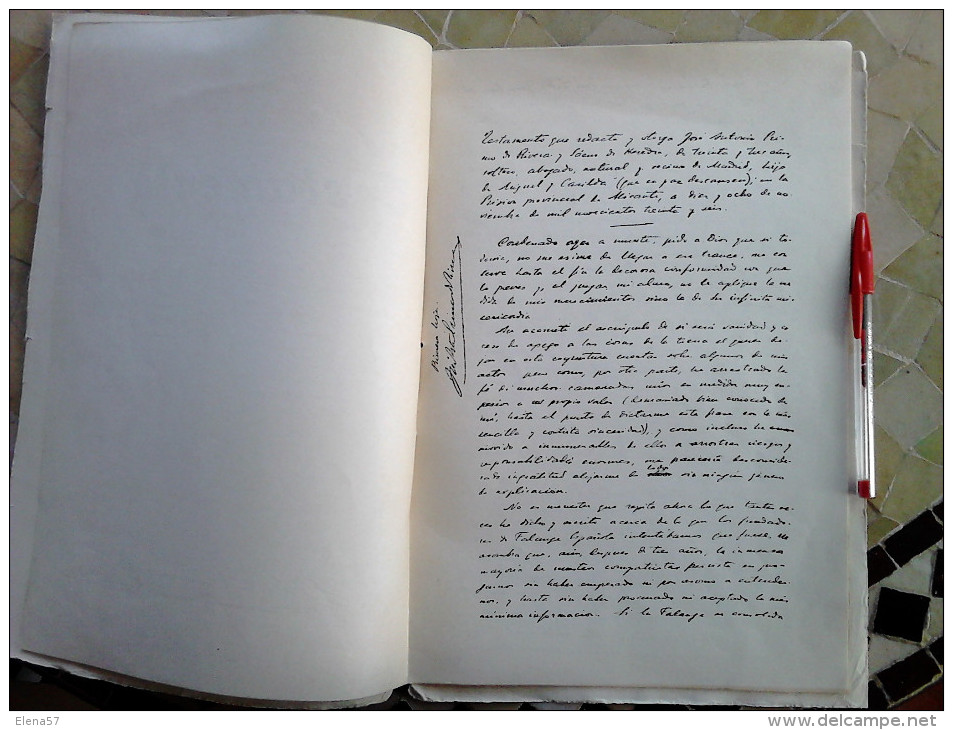 Testamento que redacta y otorga José Antonio Pri-
mo de Rivera y Sáenz de Heredia, de treinta y tres años,
soltero, abogado, natural y vecino de Madrid, hijo
de Miguel y Casilda (que en paz descansen), en la
Prisión provincial de Alicante, a diez y ocho de no
viembre de mil novecientos treinta y seis.
Condenado ayer a muerte, pido a Dios que si to-
davía no me exime de llegar a ese trance, me con
serve hasta el fin la decorosa conformidad con que
lo preveo y, al juzgar mi alma, no le aplique la me
dida de mis merecimientos sino la de su infinita mi-
sericordia
Me acomete el escrúpulo de si será vanidad y ex
ceso de apego a las cosas de la tierra el querer de-
jar en esta coyuntura cuentas sobre algunos de mis
actos pero como, por otra parte, he arrastrado la
fe de muchos camaradas míos en medida muy su-
perior a mi propio valer (demasiado bien conocido de
mí, hasta el punto de dictarme esta frase con la más
sencilla y contrita sinceridad), y como incluso he
movido a innumerables de ellos a arrostrar riesgos y
responsabilidades enormes, me parecería desconside-
rada ingratitud alejarme de todos sin ningún género
de explicación.
No es menester que repita ahora lo que tantas ve
ces he dicho y escrito acerca de lo que los fundado-
res de Falange Española intentábamos que fuese. Me
asombra que, aún después de tres años, la inmensa
mayoría de nuestros compatriotas persista en juz-
garnos sin haber empezado ni por asomo a entender-
nos, y hasta sin haber procurado ni aceptado la más
mínima información. Si la Falange se consolida
Primera hoja.
José Antonio Primo de Rivera
Elena57
www.delcampe.net